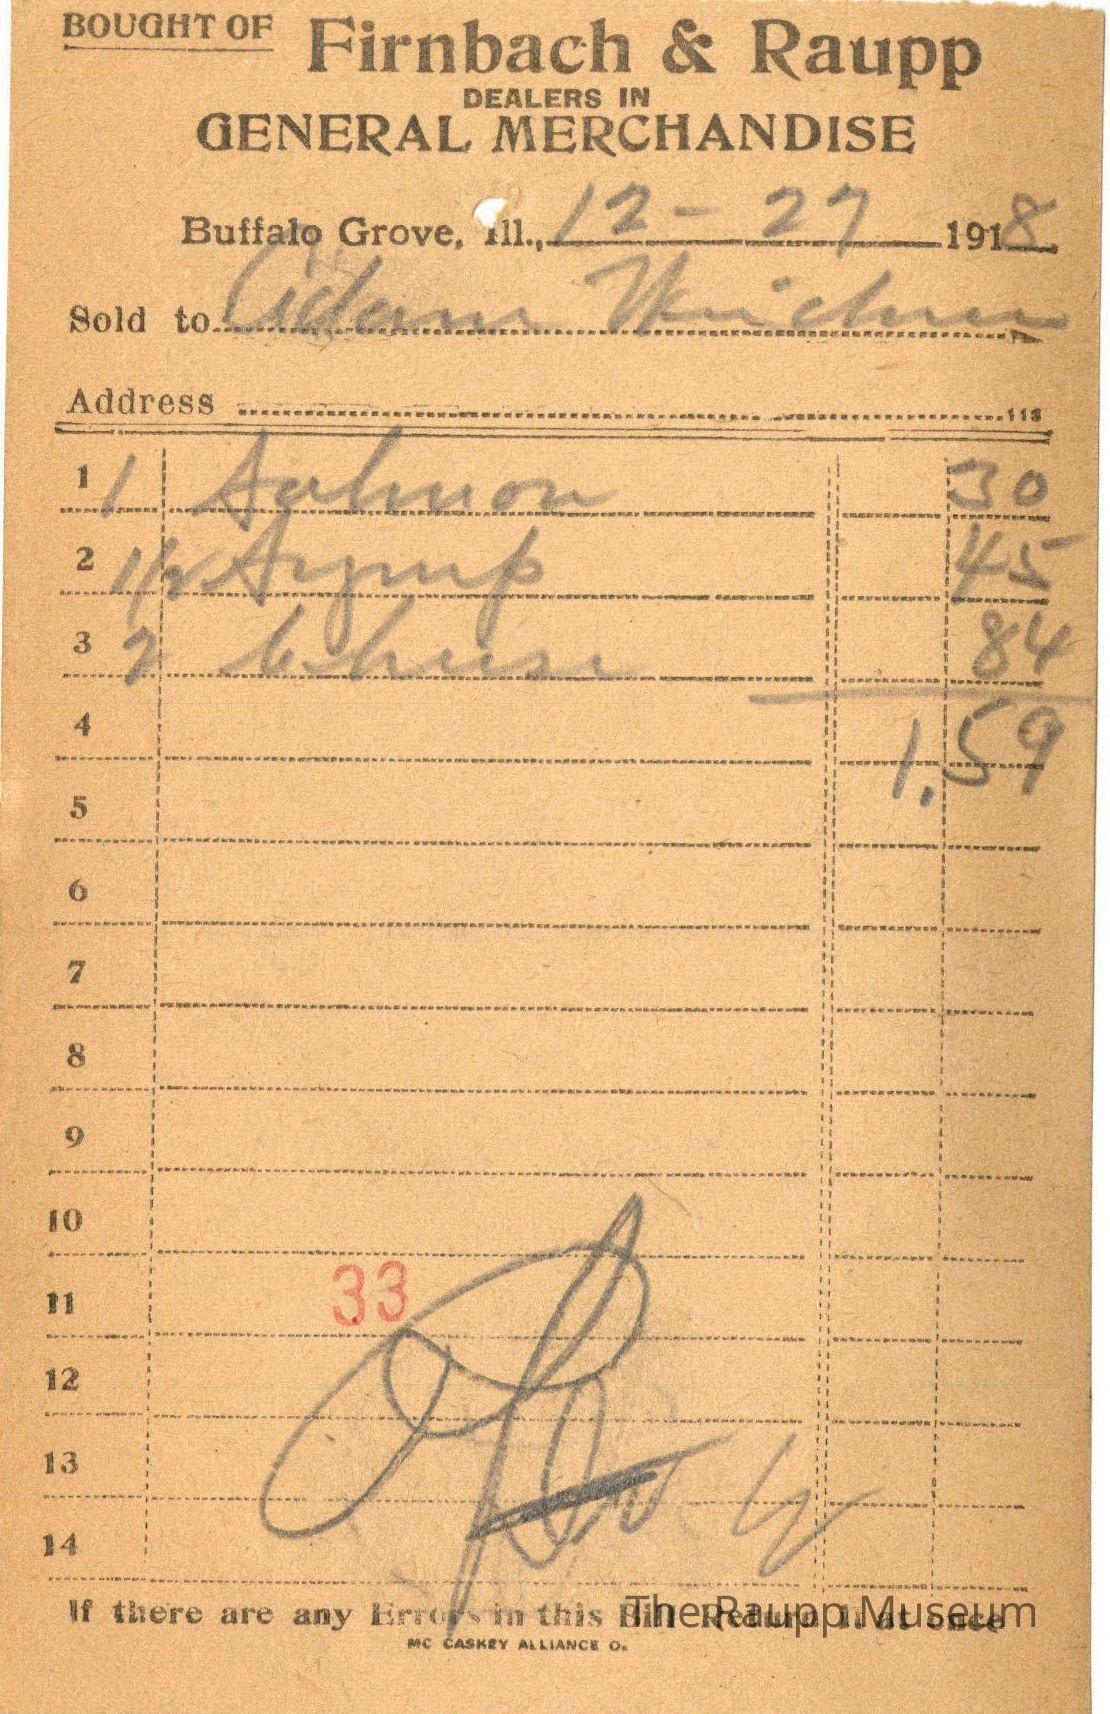 BOUGHT OF Firnbach & Raupp
DEALERS IN
GENERAL MERCHANDISE
Buffalo Grove, Ill., 12 - 27 1918
Sold to Adam
Address 113
1 1 Salmon 30
2 1/2 Syrup 45
3 2 Cheese 84
4 1.59
5
6
7
8
9
10
11 33
12
13
14
If there are any Errors in this Bill Return it at once
The Raupp Museum
MC CASKEY ALLIANCE O.